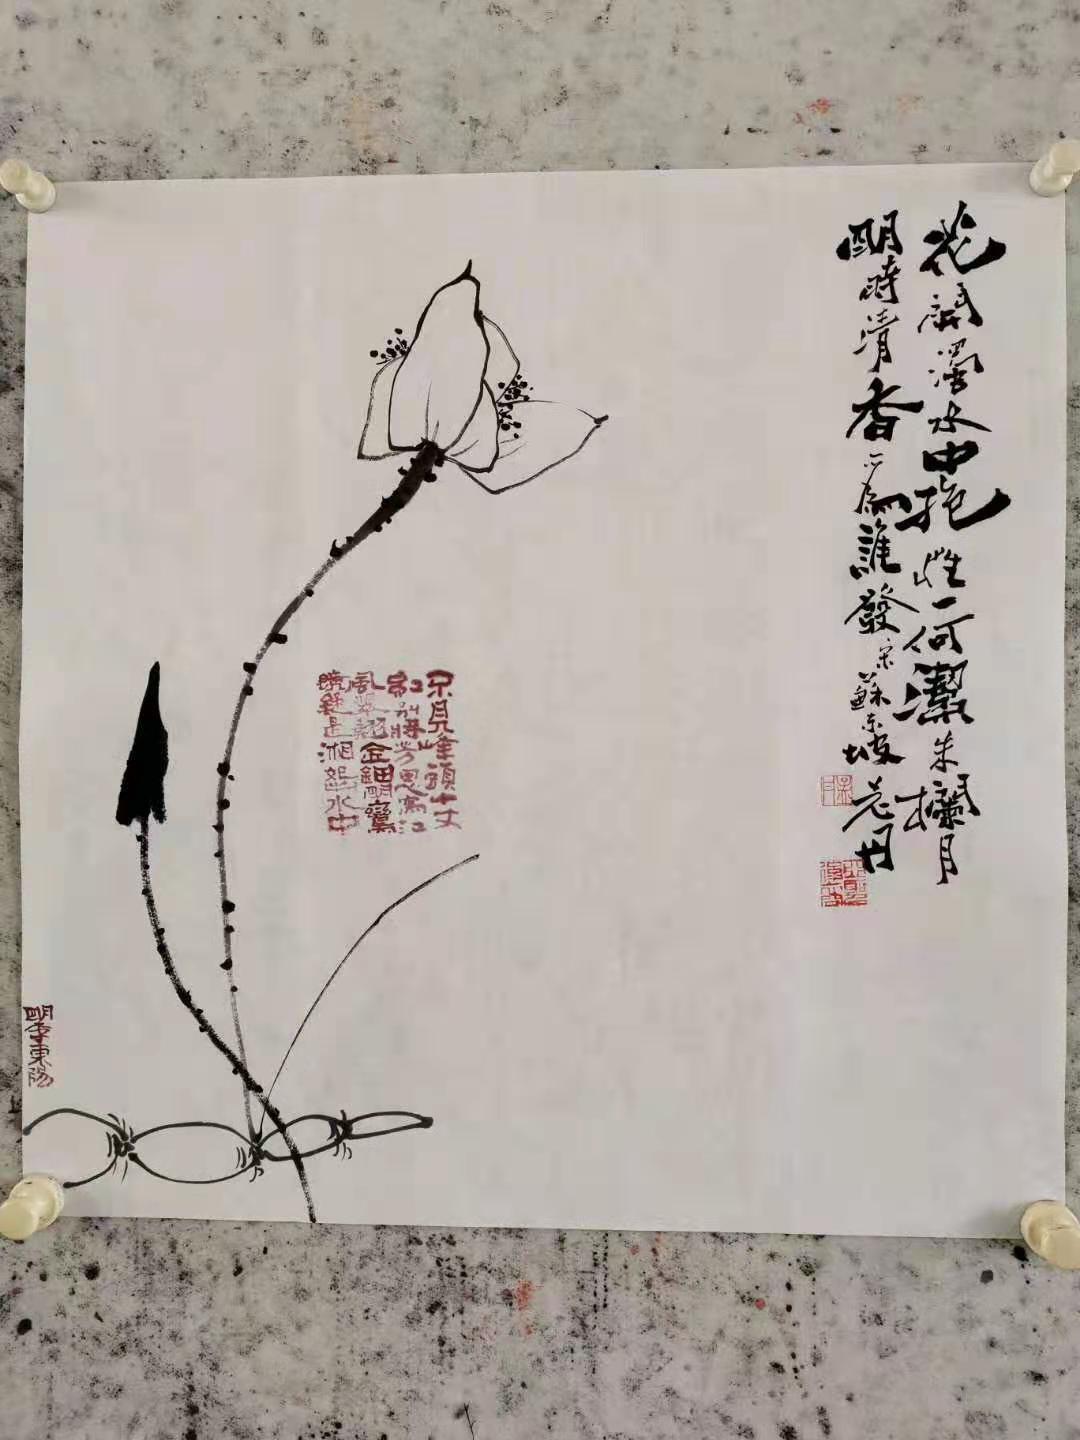 花開濁水中抱性一何潔朱欄月
明時清香為誰發宋蘇東坡老丹
不見峰頭十丈
紅別將芳思寫江
風翠翹金鈿明鸞
鏡疑是湘妃水中
明李東陽